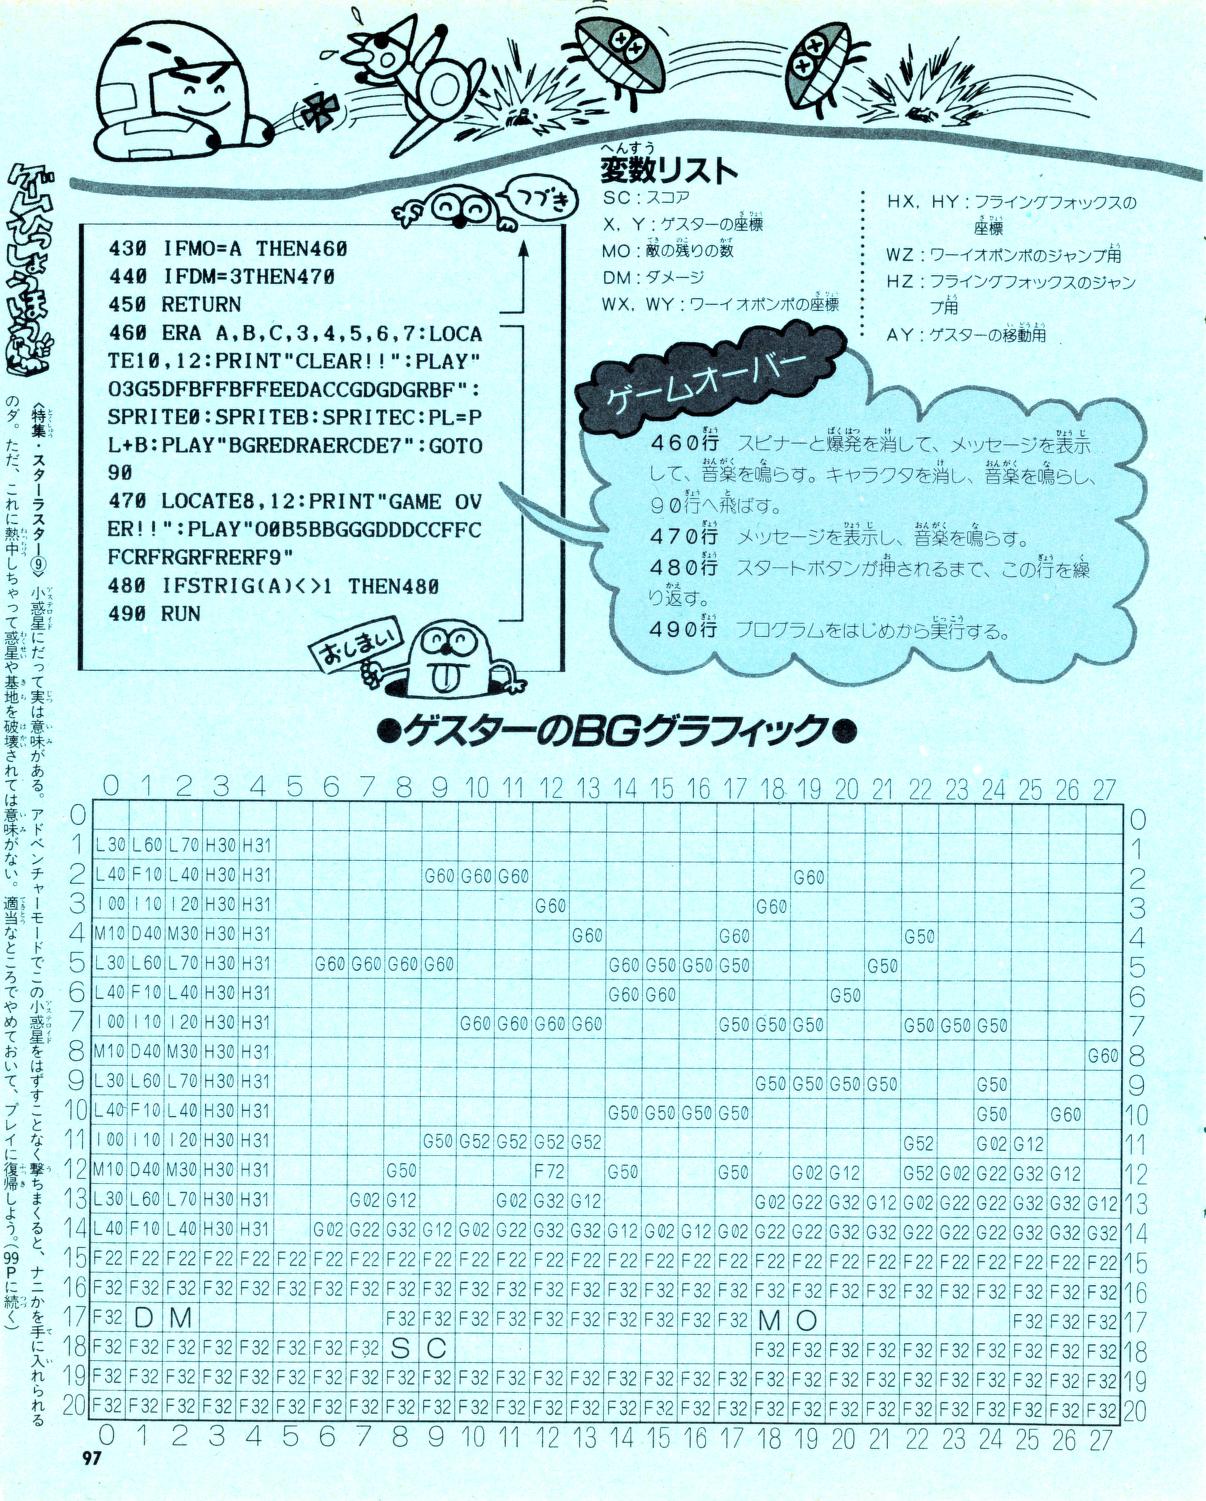 つづき
430 IFMO=A THEN460
440 IFDM=3THEN470
450 RETURN
460 ERA A,B,C,3,4,5,6,7:LOCA
TE10,12:PRINT"CLEAR!!":PLAY"
O3G5DFBFFBFFEEDACCGDGDGRBF":
SPRITE0:SPRITEB:SPRITEC:PL=P
L+B:PLAY"BGREDRAERCDE7":GOTO
90
470 LOCATE8,12:PRINT"GAME OV
ER!!":PLAY"O0B5BBGGGDDDCCFFC
FCRFRGRFRERF9"
480 IFSTRIG(A)<>1 THEN480
490 RUN
おしまい
変数リスト
SC:スコア
X, Y:ゲスターの座標
MO:敵の残りの数
DM:ダメージ
WX, WY:ワーイオポンポの座標
HX, HY:フライングフォックスの
座標
WZ:ワーイオポンポのジャンプ用
HZ:フライングフォックスのジャン
プ用
AY:ゲスターの移動用
ゲームオーバー
460行 スピナーと爆発を消して、メッセージを表示
して、音楽を鳴らす。キャラクタを消し、音楽を鳴らし、
90行へ飛ばす。
470行 メッセージを表示し、音楽を鳴らす。
480行 スタートボタンが押されるまで、この行を繰
り返す。
490行 プログラムをはじめから実行する。
●ゲスターのBGグラフィック●
0 1 2 3 4 5 6 7 8 9 10 11 12 13 14 15 16 17 18 19 20 21 22 23 24 25 26 27
0 0
1 L30 L60 L70 H30 H31 1
2 L40 F10 L40 H30 H31 G60 G60 G60 G60 2
3 I00 I10 I20 H30 H31 G60 G60 3
4 M10 D40 M30 H30 H31 G60 G60 G50 4
5 L30 L60 L70 H30 H31 G60 G60 G60 G60 G60 G50 G50 G50 G50 5
6 L40 F10 L40 H30 H31 G60 G60 G50 6
7 I00 I10 I20 H30 H31 G60 G60 G60 G60 G50 G50 G50 G50 G50 G50 7
8 M10 D40 M30 H30 H31 G60 8
9 L30 L60 L70 H30 H31 G50 G50 G50 G50 G50 9
10 L40 F10 L40 H30 H31 G50 G50 G50 G50 G50 G60 10
11 I00 I10 I20 H30 H31 G50 G52 G52 G52 G52 G52 G02 G12 11
12 M10 D40 M30 H30 H31 G50 F72 G50 G50 G02 G12 G52 G02 G22 G32 G12 12
13 L30 L60 L70 H30 H31 G02 G12 G02 G32 G12 G02 G22 G32 G12 G02 G22 G22 G32 G32 G12 13
14 L40 F10 L40 H30 H31 G02 G22 G32 G12 G02 G22 G32 G32 G12 G02 G12 G02 G22 G22 G32 G32 G22 G22 G22 G32 G32 G32 14
15 F22 F22 F22 F22 F22 F22 F22 F22 F22 F22 F22 F22 F22 F22 F22 F22 F22 F22 F22 F22 F22 F22 F22 F22 F22 F22 F22 F22 15
16 F32 F32 F32 F32 F32 F32 F32 F32 F32 F32 F32 F32 F32 F32 F32 F32 F32 F32 F32 F32 F32 F32 F32 F32 F32 F32 F32 F32 16
17 F32 D M F32 F32 F32 F32 F32 F32 F32 F32 F32 F32 M O F32 F32 F32 17
18 F32 F32 F32 F32 F32 F32 F32 F32 S C F32 F32 F32 F32 F32 F32 F32 F32 F32 F32 18
19 F32 F32 F32 F32 F32 F32 F32 F32 F32 F32 F32 F32 F32 F32 F32 F32 F32 F32 F32 F32 F32 F32 F32 F32 F32 F32 F32 F32 19
20 F32 F32 F32 F32 F32 F32 F32 F32 F32 F32 F32 F32 F32 F32 F32 F32 F32 F32 F32 F32 F32 F32 F32 F32 F32 F32 F32 F32 20
0 1 2 3 4 5 6 7 8 9 10 11 12 13 14 15 16 17 18 19 20 21 22 23 24 25 26 27
ゲームひっしょうほう
〈特集・スターラスター⑨〉小惑星にだって実は意味がある。アドベンチャーモードでこの小惑星をはずすことなく撃ちまくると、ナニかを手に入れられる
のダ。ただ、これに熱中しちゃって惑星や基地を破壊されては意味がない。適当なところでやめておいて、プレイに復帰しよう。(99Pに続く)
97